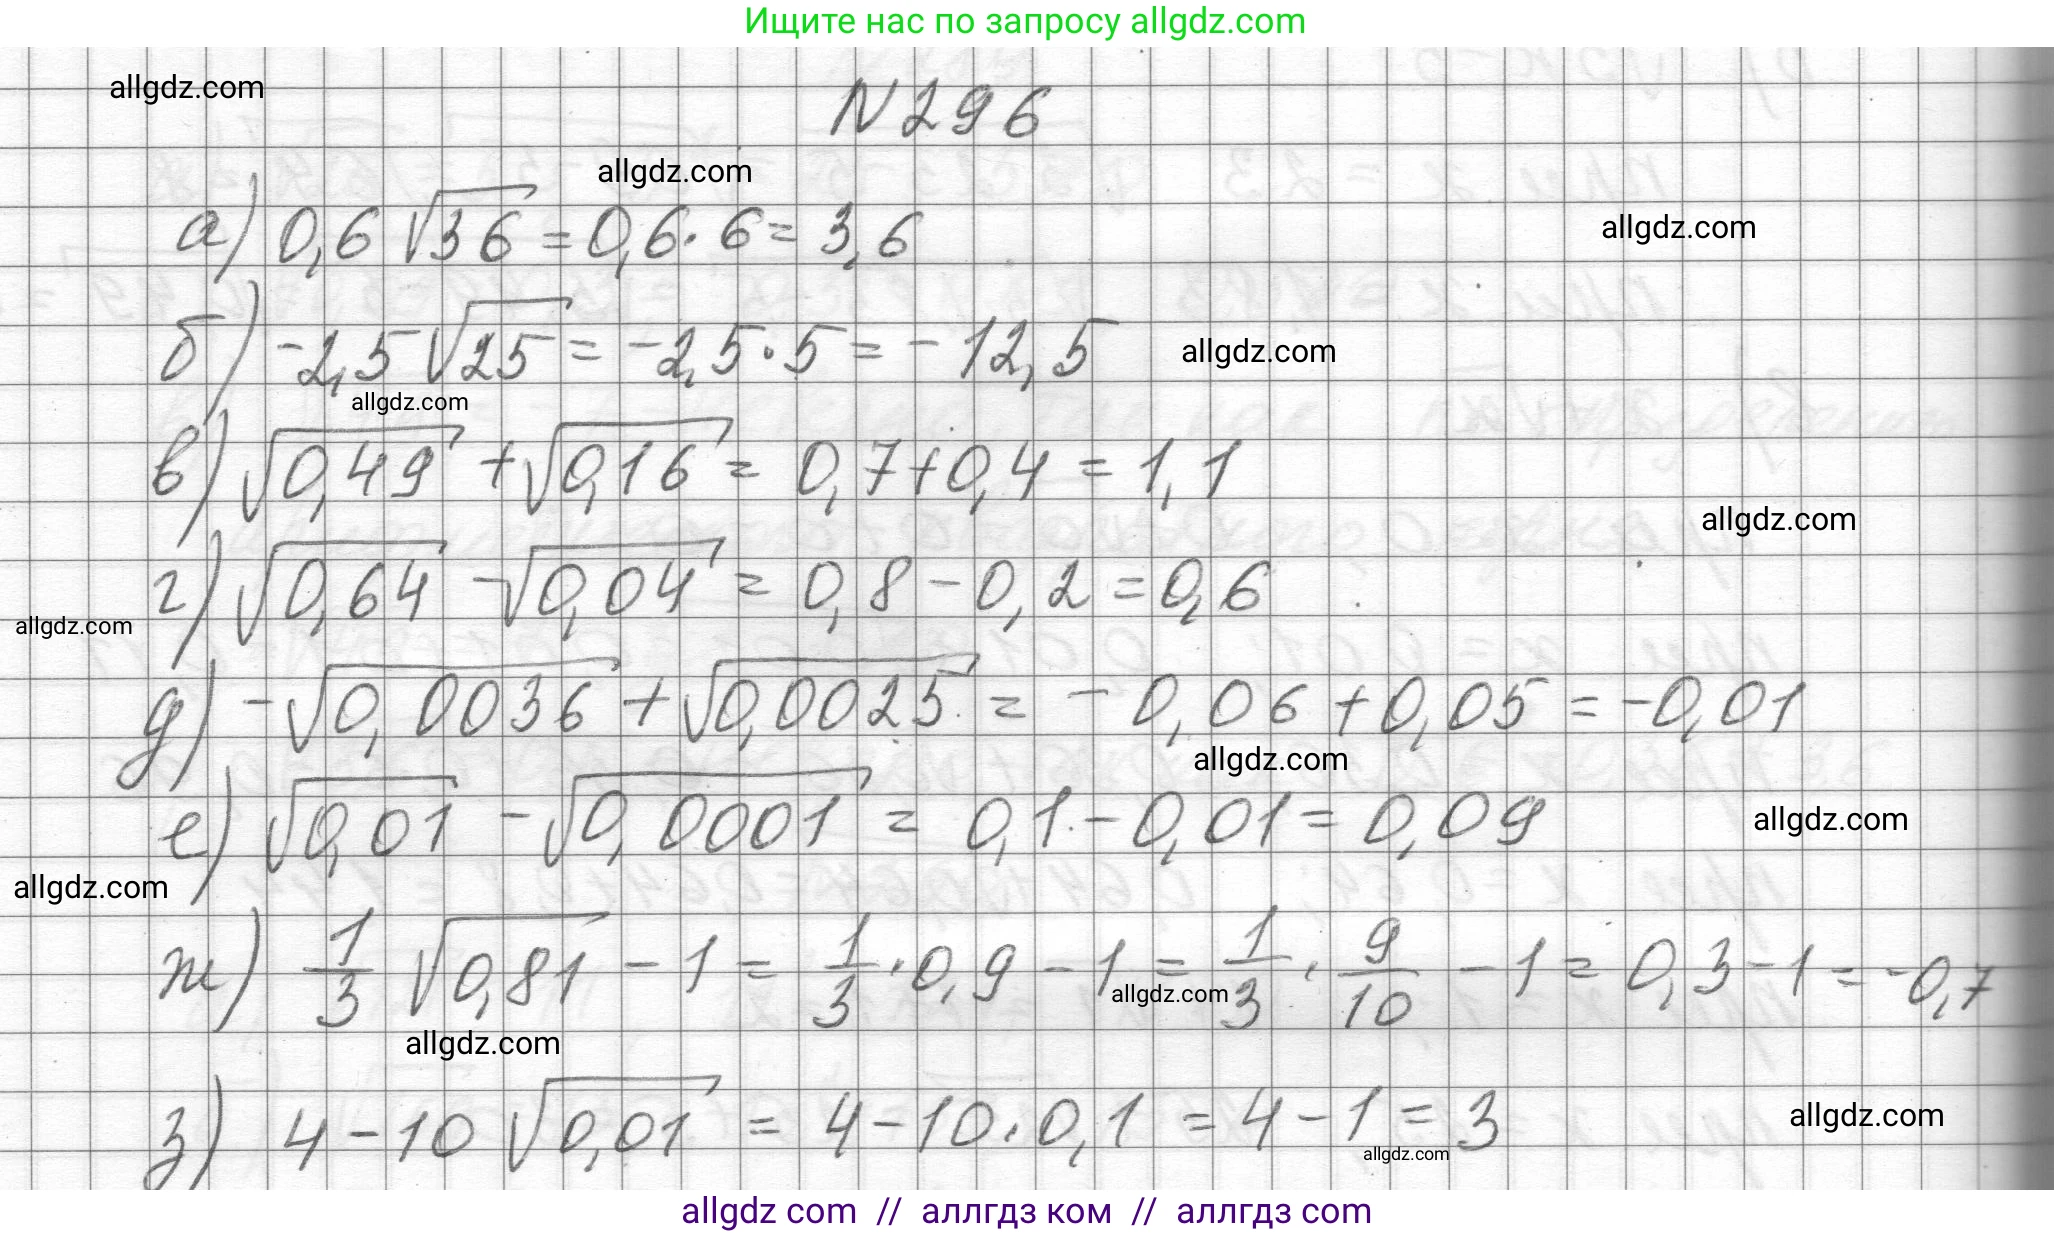 Ищите нас по запросу allgdz.com
allgdz.com
N 296
allgdz.com
а) 0,6 √36 = 0,6 · 6 = 3,6
allgdz.com
б) -2,5 √25 = -2,5 · 5 = -12,5
allgdz.com
allgdz.com
в) √0,49 + √0,16 = 0,7 + 0,4 = 1,1
allgdz.com
г) √0,64 - √0,04 = 0,8 - 0,2 = 0,6
allgdz.com
д) -√0,0036 + √0,0025 = -0,06 + 0,05 = -0,01
allgdz.com
е) √0,01 - √0,0001 = 0,1 - 0,01 = 0,09
allgdz.com
allgdz.com
ж) 1/3 √0,81 - 1 = 1/3 · 0,9 - 1 = 1/3 · 9/10 - 1 = 0,3 - 1 = -0,7
allgdz.com
allgdz.com
з) 4 - 10 √0,01 = 4 - 10 · 0,1 = 4 - 1 = 3
allgdz.com
allgdz.com
allgdz com // аллгдз ком // аллгдз com